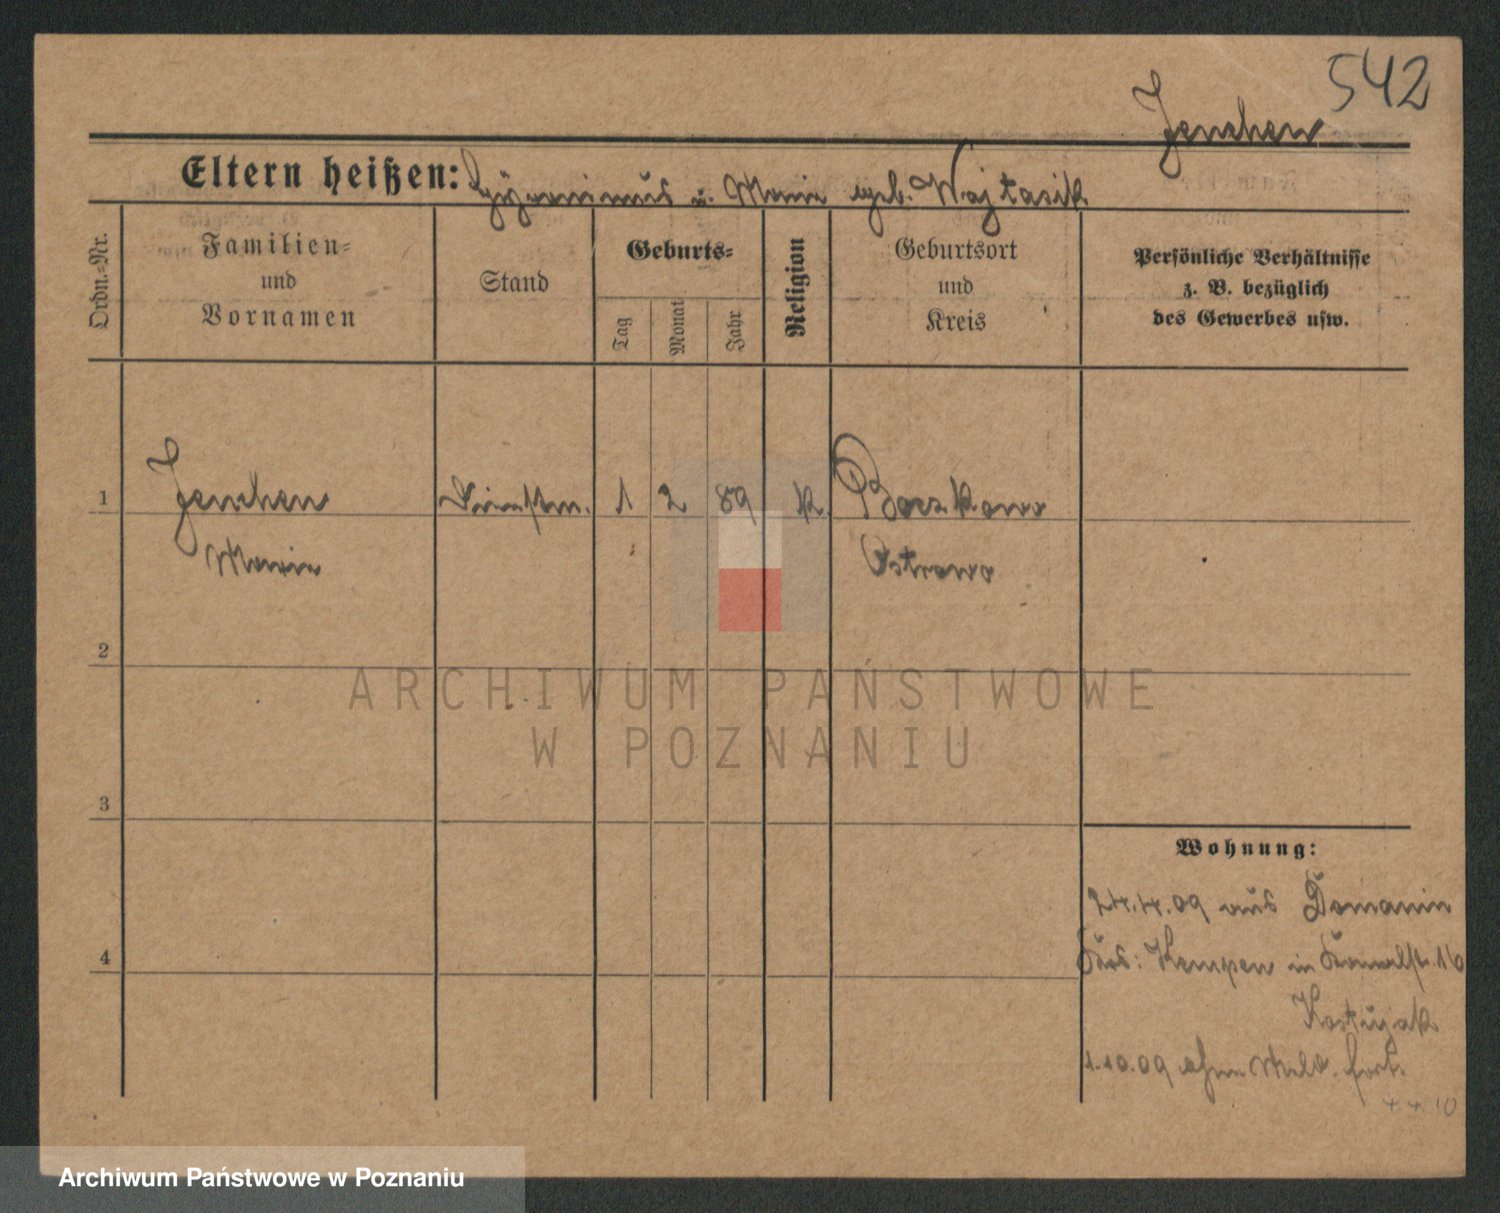 542
Jenchen
Eltern heißen: Hyronimus u. Marie geb. Wojtasik
Ordn.-Nr.
Familien-
und
Vornamen
Stand
Geburts-
Tag
Monat
Jahr
Religion
Geburtsort
und
Kreis
Persönliche Verhältnisse
z. B. bezüglich
des Gewerbes usw.
1 Jenchen Dienstm. 1 2 89 k. Boczkowo
Marie Ostrowo
2
3
4
Wohnung:
24.4.09 aus Domanin
Krs: Kempen in 16
Kostujak
1.10.09 ohne Meld. fort.
4.4.10
ARCHIWUM PAŃSTWOWE
W POZNANIU
Archiwum Państwowe w Poznaniu